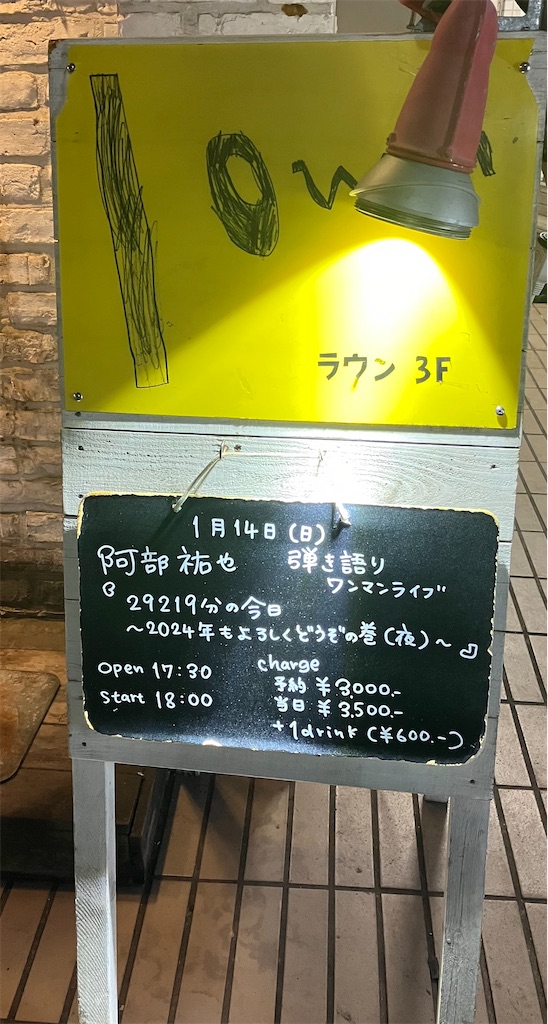 low
ラウン 3F
1月14日(日)
阿部祐也 弾き語り
ワンマンライブ
『29219分の今日
~2024年もよろしくどうぞの巻(夜)~』
open 17:30 charge
予約 ¥3,000.-
start 18:00 当日 ¥3,500.-
+1drink (¥600.-)